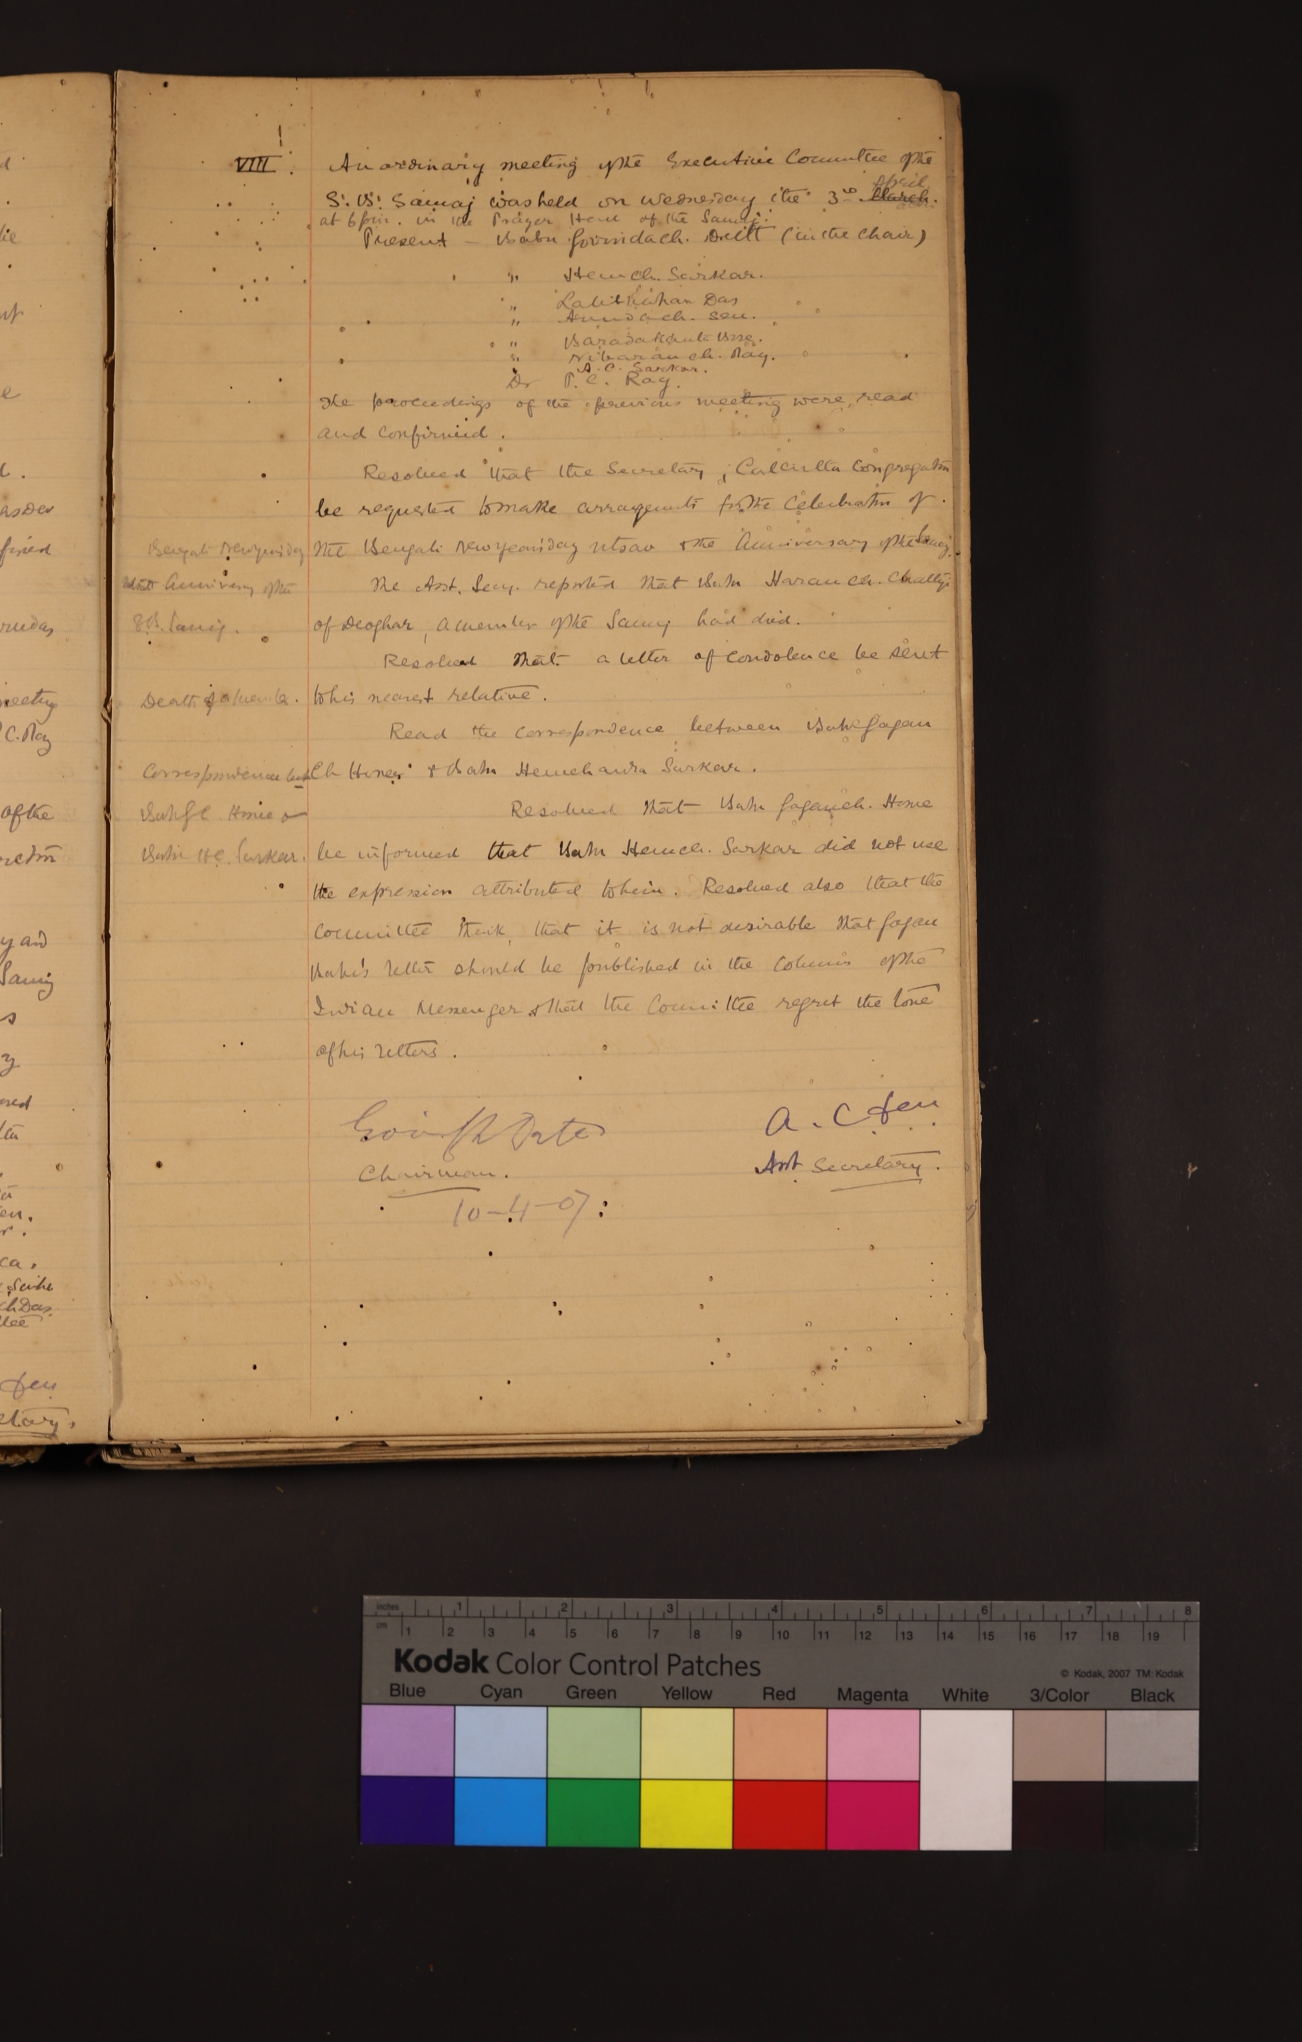 VIII. An ordinary meeting of the Executive Committee of the
S. B. Samaj was held on Wednesday the 3rd March. April
at 6 p.m. in the Prayer Hall of the Samaj.
Present — Babu Govindach. Dutt (in the Chair)
" Hemch. Sarkar.
" Lalit Mohan Das
" Annadach. Sen.
" Baradakanta Bose.
" Nibaranch. Ray.
" A. C. Sarkar.
Dr P. C. Ray.
The proceedings of the previous meeting were read
and confirmed.
Resolved that the Secretary, Calcutta Congregation
be requested to make arrangements for the Celebration of
Bengali New year's day
the Bengali New year's day utsav & the Anniversary of the Samaj.
Anniversary of the
The Asst. Secy. reported that Babu Haran ch. Chatterji
S.B. Samaj.
of Deoghar, a member of the Samaj had died.
Resolved that a letter of condolence be sent
Death of a member.
to his nearest relative.
Read the correspondence between Babu Gagan
Correspondence
Ch Home & Babu Hemchandra Sarkar.
Babu G C Home &
Resolved that Babu Gaganch. Home
Babu H C Sarkar.
be informed that Babu Hemch. Sarkar did not use
the expression attributed to him. Resolved also that the
Committee think that it is not desirable that Gagan
Babu's letter should be published in the columns of the
Indian Messenger & that the Committee regret the tone
of his letters.
A. C. Sen
Chairman.
Asst. Secretary.
10-4-07
inches 1 2 3 4 5 6 7 8
cm 1 2 3 4 5 6 7 8 9 10 11 12 13 14 15 16 17 18 19
Kodak Color Control Patches
© Kodak, 2007 TM: Kodak
Blue Cyan Green Yellow Red Magenta White 3/Color Black